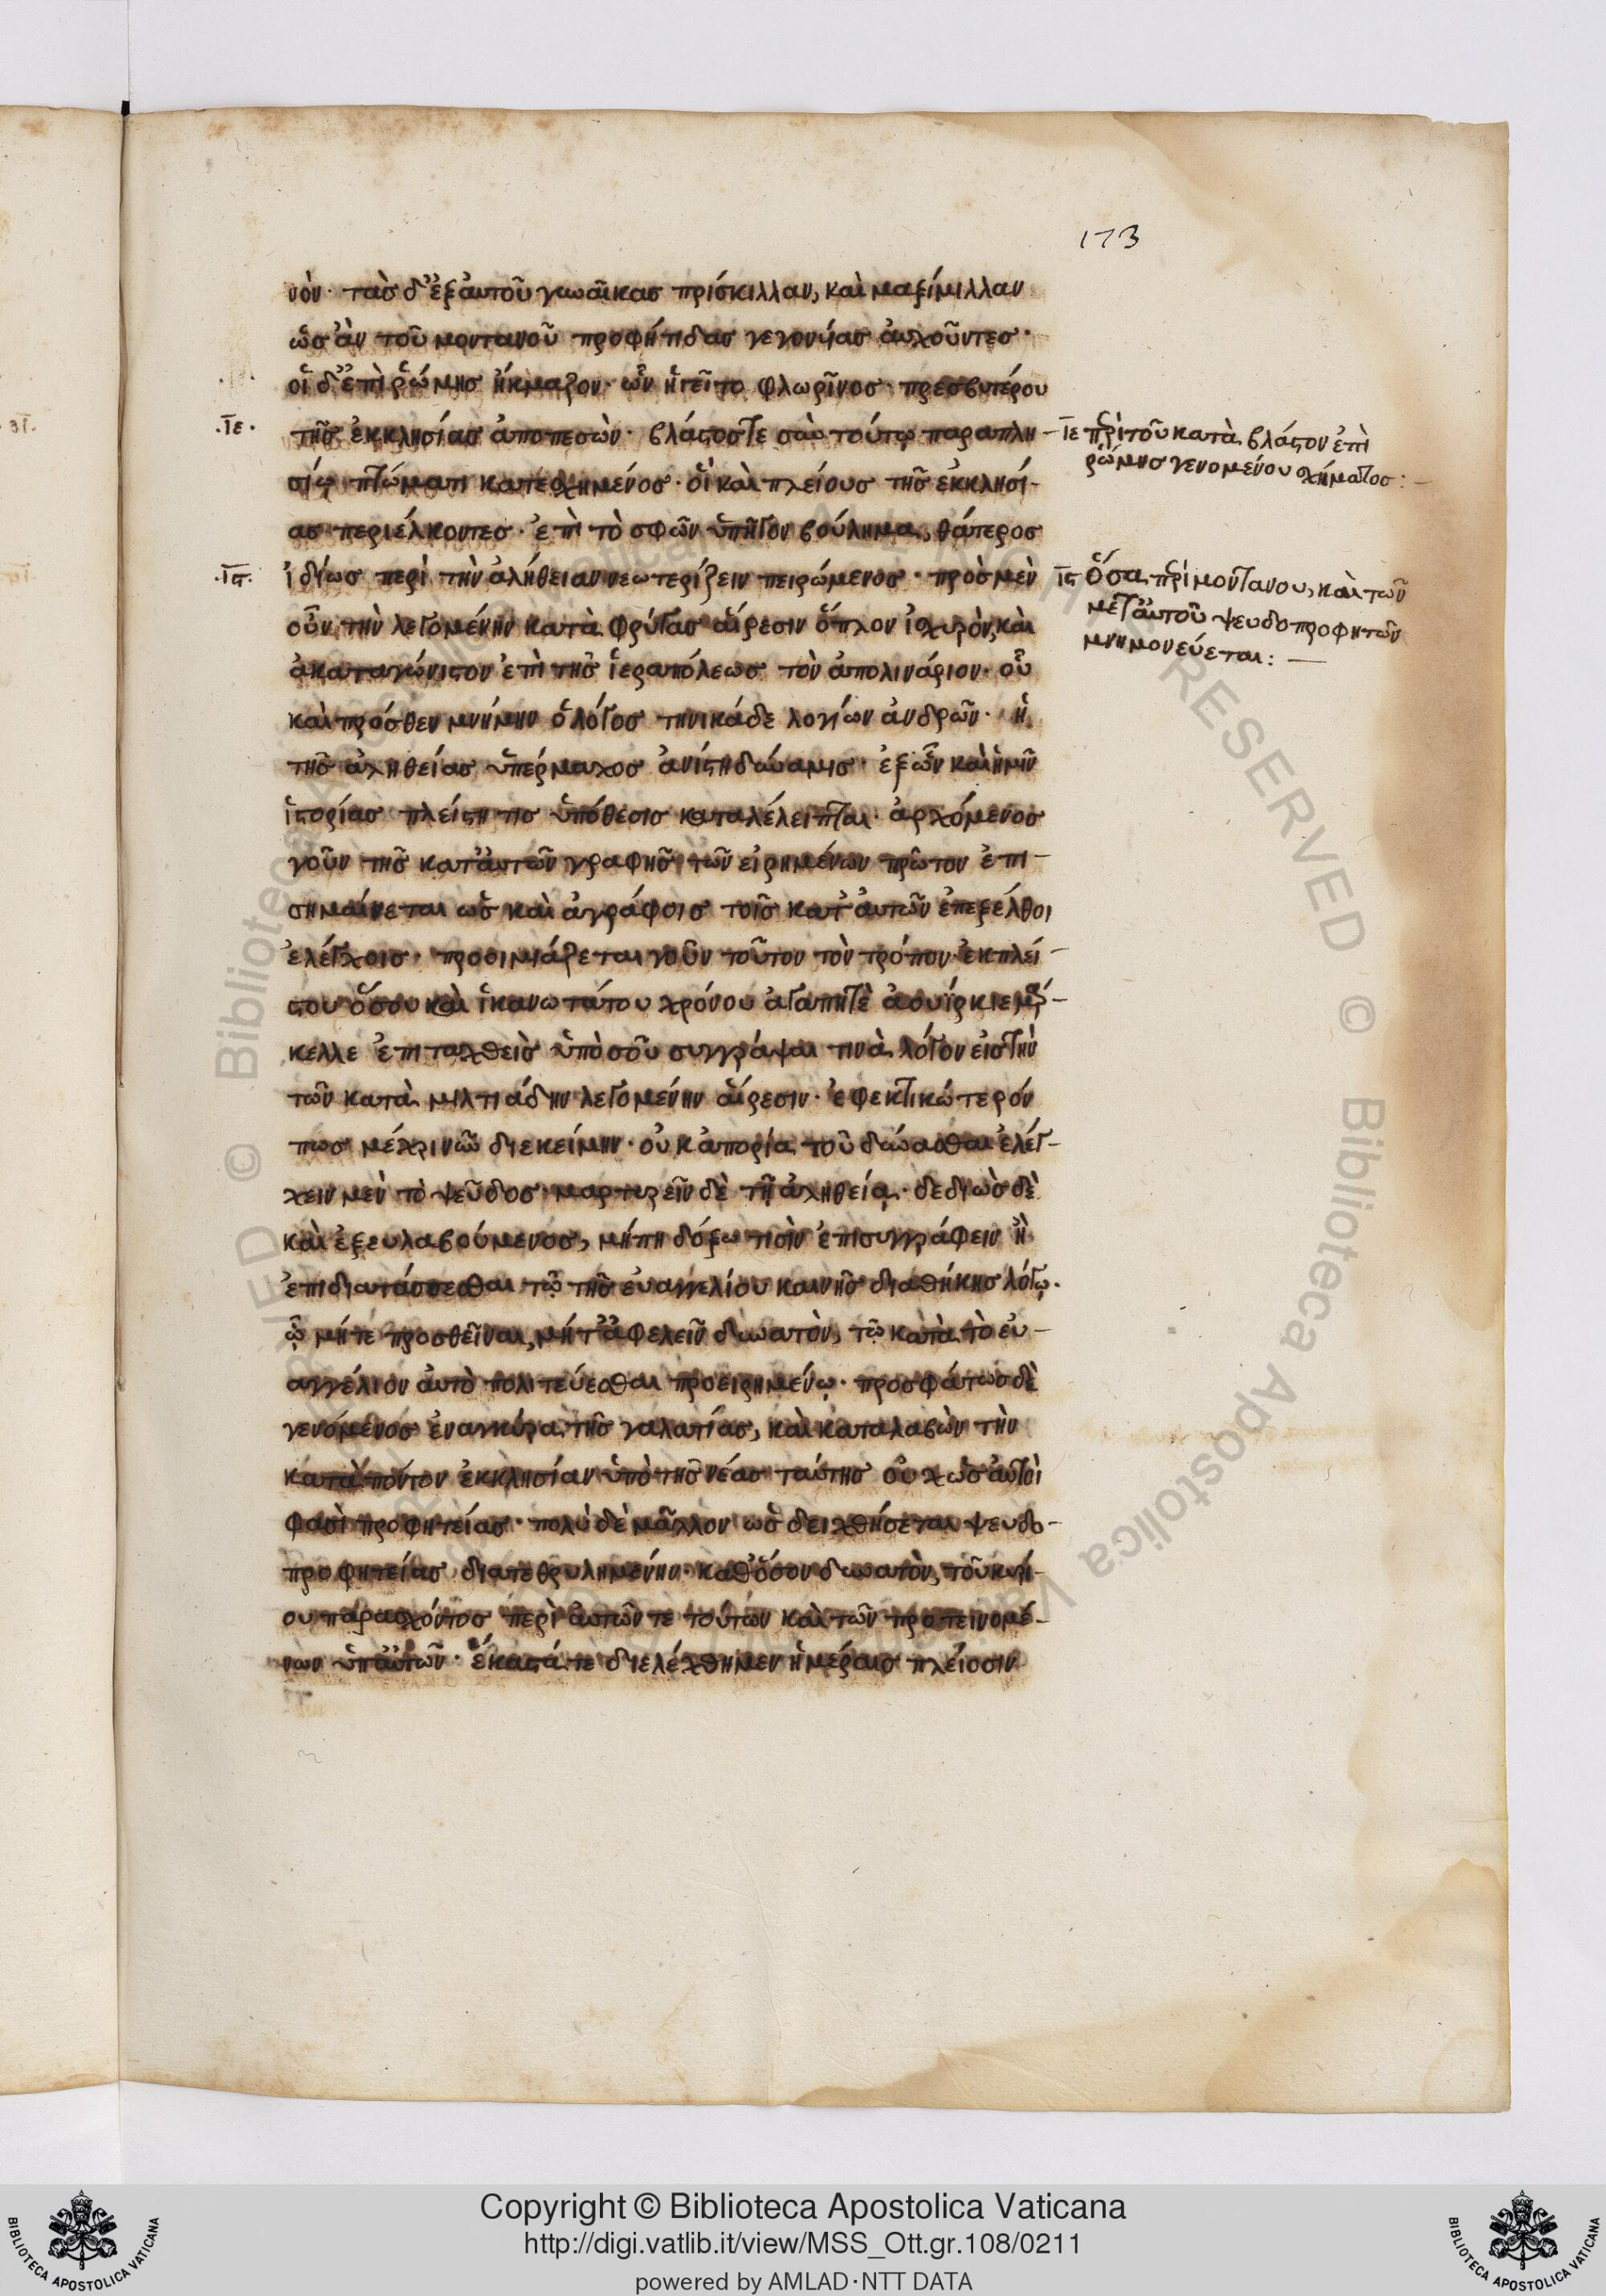 173
νὸν· τὰσ δ' ἐξ ἀυτοῦ γυναῖκασ πρίσκιλλαν, καὶ μαξίμιλλαν
ὡσ ἂν τοῦ μοντανοῦ προφήτιδασ γεγονυίασ ἀυχοῦντεσ·
οἱ δ' ἐπὶ ῥώμησ ἤκμαζον· ὧν ἡγεῖτο φλωρῖνοσ· πρεσβυτέρου
·ιε· τῆσ ἐκκλησίασ ἀποπεσὼν· βλάστοσ τε σὺν τούτω παραπλη-
σίῳ πτώματι κατεσχημένοσ· οἱ καὶ πλείουσ τῆσ ἐκκλησί-
ασ περιέλκοντεσ· ἐπὶ τὸ σφῶν ὑπῆγον βούλημα, θάτεροσ
·ις· ἰδίωσ περὶ τὴν ἀλήθειαν νεωτερίζειν πειρώμενοσ· πρὸσ μὲν
οὖν τὴν λεγομένην κατὰ φρύγασ αἵρεσιν ὅπλον ἰσχυρὸν, καὶ
ἀκαταγώνιστον ἐπὶ τῆσ ἱεραπόλεωσ τὸν ἀπολινάριον· οὗ
καὶ πρόσθεν μνήμην ὁ λόγοσ τηνικάδε λογίων ἀνδρῶν· ἡ
τῆσ ἀληθείασ ὑπέρμαχοσ ἀνίστη δύναμισ· ἐξ ὧν καὶ ἡμῖν
ἱστορίασ πλείστη τισ ὑπόθεσισ καταλέλειπται· ἀρχόμενοσ
γοῦν τῆσ κατ' ἀυτῶν γραφῆσ τῶν εἰρημένων πρῶτον ἐπι-
σημαίνεται ὡσ καὶ ἀγράφοισ τοῖσ κατ' ἀυτῶν ἐπεξέλθοι
ἐλέγχοισ· προοιμιάζεται γοῦν τοῦτον τὸν τρόπον· ἐκ πλεί-
στου ὅσου καὶ ἱκανωτάτου χρόνου ἀγαπητὲ ἀουίρκιε μάρ-
κελλε ἐπιταχθεὶσ ὑπὸ σοῦ συγγράψαι τινὰ λόγον εἰσ τὴν
τῶν κατὰ μιλτιάδην λεγομένην αἵρεσιν· ἐφεκτικώτερόν
πωσ μέχρι νῦν διεκείμην· οὐκ ἀπορία τοῦ δύνασθαι ἐλέγ-
χειν μὲν τὸ ψεῦδοσ μαρτυρεῖν δὲ τῆ ἀληθεία· δεδιὼσ δὲ
καὶ ἐξευλαβούμενοσ, μή πη δόξω τισὶν ἐπισυγγράφειν ἢ
ἐπιδιατάσσεσθαι τῶ τῆσ ἐυαγγελίου καινῆσ διαθήκησ λόγω·
ᾧ μήτε προσθεῖναι, μήτ' ἀφελεῖν δυνατὸν, τῶ κατὰ τὸ ἐυ-
αγγέλιον ἀυτὸ πολιτεύεσθαι προειρημένῳ· προσφάτωσ δὲ
γενόμενοσ ἐν ἀγκύρα τῆσ γαλατίασ, καὶ καταλαβὼν τὴν
κατὰ πόντον ἐκκλησίαν ὑπὸ τῆσ νέασ ταύτησ οὐχ ὡσ ἀυτοὶ
φασὶ προφητείασ· πολὺ δὲ μᾶλλον ὡσ δειχθήσεται ψευδο-
προφητείασ διατεθρυλημένην· καθ' ὅσον δυνατὸν, τοῦ κυρί-
ου παρασχόντοσ περὶ ἀυτῶν τε τούτων καὶ τῶν προτεινομέ-
νων ὑπ' ἀυτῶν· ἕκαστά τε διελέχθημεν ἡμέραισ πλείοσιν
ιε περὶ τοῦ κατὰ βλάστον ἐπὶ
ῥώμησ γενομένου σχήματοσ:-
ις ὅσα περὶ μοντανου, καὶ τῶν
μετ' ἀυτοῦ ψευδοπροφητῶν
μνημονεύεται:-
Copyright © Biblioteca Apostolica Vaticana
http://digi.vatlib.it/view/MSS_Ott.gr.108/0211
powered by AMLAD·NTT DATA